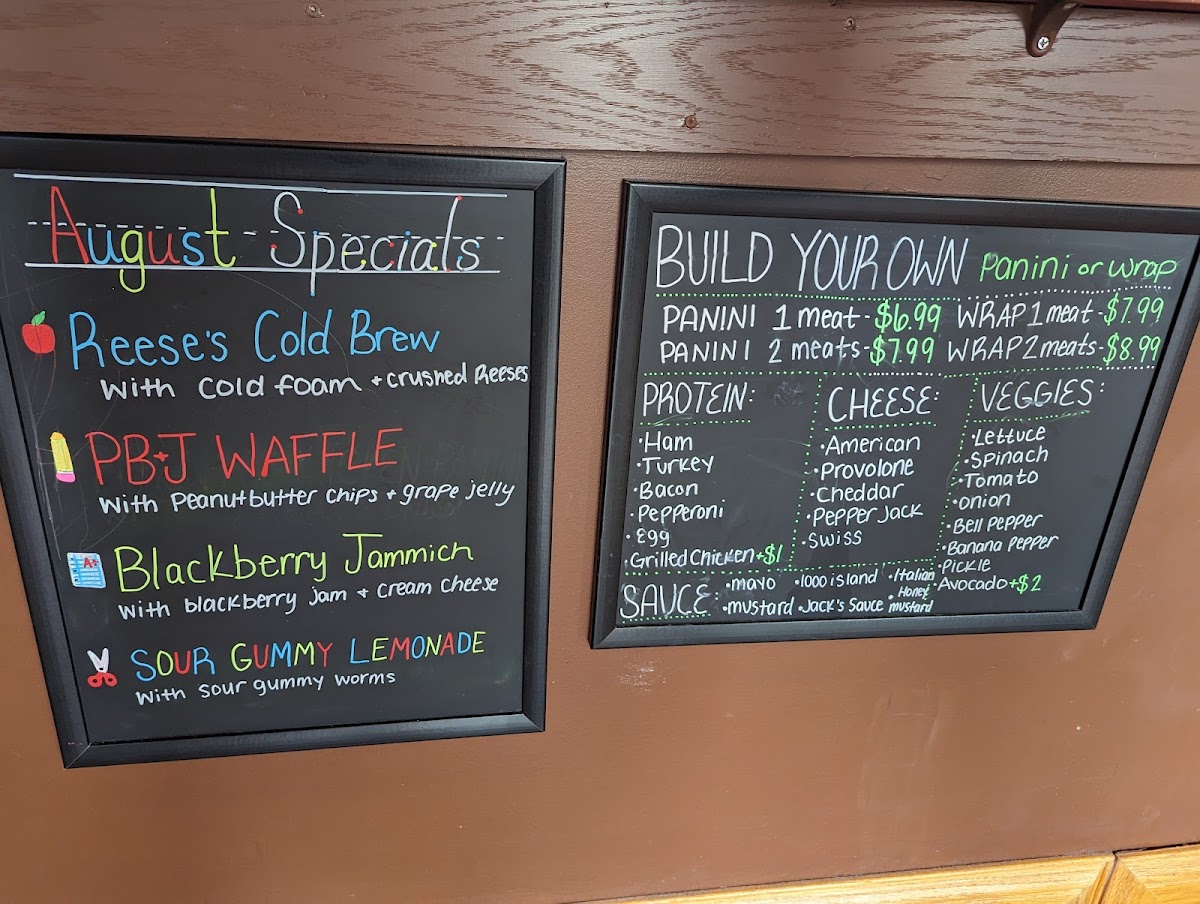 August Specials
Reese's Cold Brew
With cold foam + crushed Reeses
PB+J WAFFLE
With Peanutbutter chips + grape jelly
A+
Blackberry Jammich
With blackberry jam + cream cheese
SOUR GUMMY LEMONADE
With sour gummy worms
BUILD YOUR OWN Panini or wrap
PANINI 1 meat - $6.99 WRAP 1 meat - $7.99
PANINI 2 meats - $7.99 WRAP 2 meats - $8.99
PROTEIN:
·Ham
·Turkey
·Bacon
·Pepperoni
·Egg
·Grilled Chicken +$1
CHEESE:
·American
·Provolone
·Cheddar
·Pepper Jack
·Swiss
VEGGIES:
·Lettuce
·Spinach
·Tomato
·onion
·Bell Pepper
·Banana Pepper
·Pickle
·Avocado +$2
SAUCE:
·mayo ·1000 island ·Italian
·mustard ·Jack's Sauce ·Honey
mustard